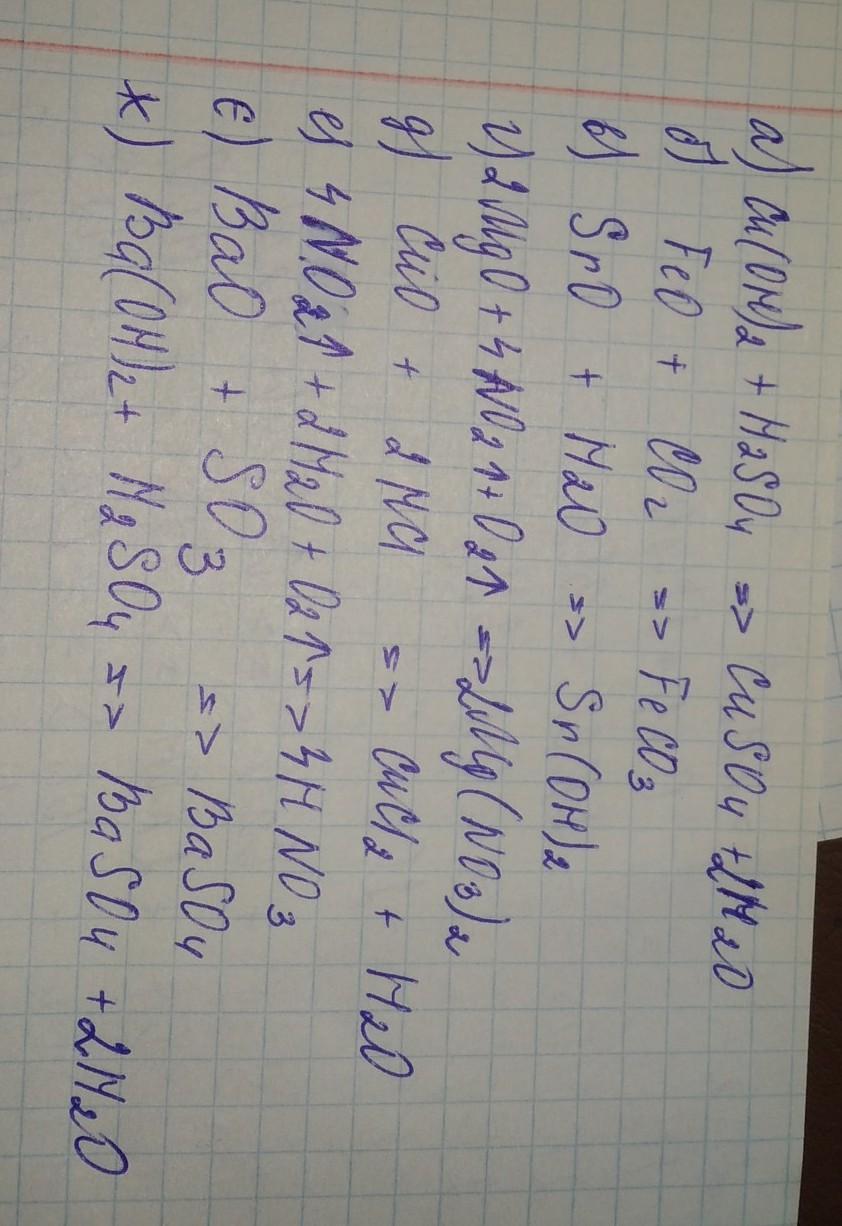 а) Cu(OH)2 + H2SO4 => CuSO4 + 2H2O
б) FeO + CO2 => FeCO3
в) SrO + H2O => Sr(OH)2
г) 2MgO + 4NO2↑ + O2↑ => 2Mg(NO3)2
д) CuO + 2HCl => CuCl2 + H2O
е) 4NO2↑ + 2H2O + O2↑ => 4HNO3
є) BaO + SO3 => BaSO4
ж) Ba(OH)2 + H2SO4 => BaSO4 + 2H2O